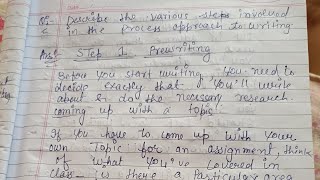 Q:- Describe the various steps involved
in the Process approach to writing.
Ans:- STep 1. Prewriting
Before you start writing, you need to
decide exactly that you'll write
about & do the necessary research.
coming up with a topic
If you have to come up with your
own Topic for an assignment, think
of what you've covered in
class - is there a Particular area